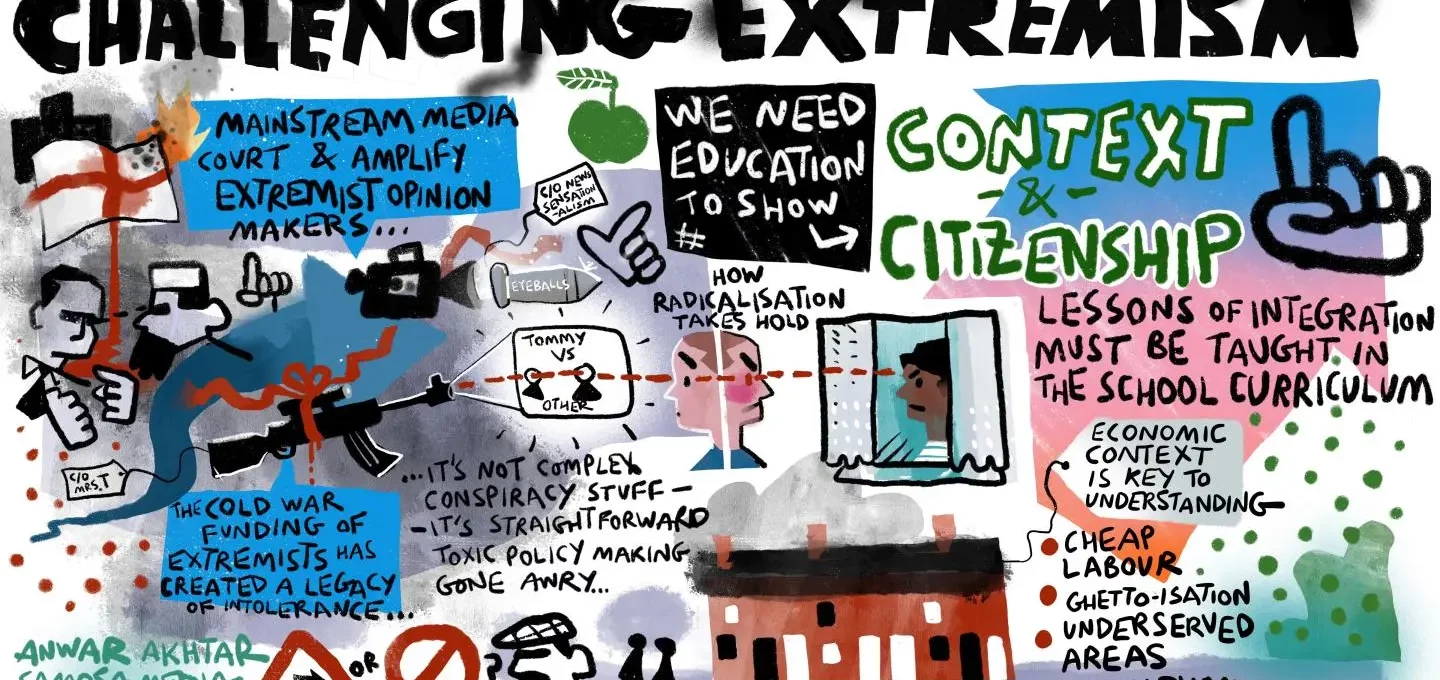 CHALLENGING EXTREMISM
MAINSTREAM MEDIA
COURT & AMPLIFY
EXTREMIST OPINION
MAKERS...
C/O NEWS
SENSATION
-ALISM
EYEBALLS
TOMMY
VS
OTHER
C/O
MRS.T
THE COLD WAR
FUNDING OF
EXTREMISTS HAS
CREATED A LEGACY
OF INTOLERANCE...
...IT'S NOT COMPLEX
CONSPIRACY STUFF –
– IT'S STRAIGHTFORWARD
TOXIC POLICY MAKING
GONE AWRY...
WE NEED
EDUCATION
TO SHOW
#
HOW
RADICALISATION
TAKES HOLD
CONTEXT
- & -
CITIZENSHIP
LESSONS OF INTEGRATION
MUST BE TAUGHT IN
THE SCHOOL CURRICULUM
ECONOMIC
CONTEXT
IS KEY TO
UNDERSTANDING –
CHEAP
LABOUR
GHETTO-ISATION
UNDERSERVED
AREAS
ANWAR AKHTAR
SAMOSA MEDIA
OR